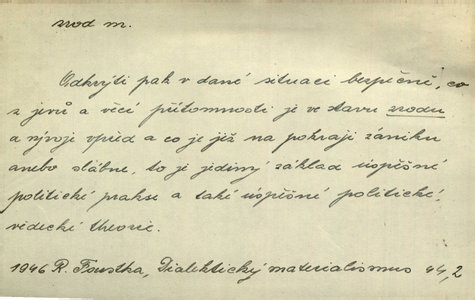 zrod m.
Odkrýti pak v dané situaci bezpečně, co
z jevů a věcí přítomnosti je ve stavu zrodu
a vývoje vpřed a co je již na pokraji zániku
anebo slábne, to je jediný základ úspěšné
politické prakse a také úspěšné politické,
vědecké theorie.
1946 R. Foustka, Dialektický materialismus 44,2